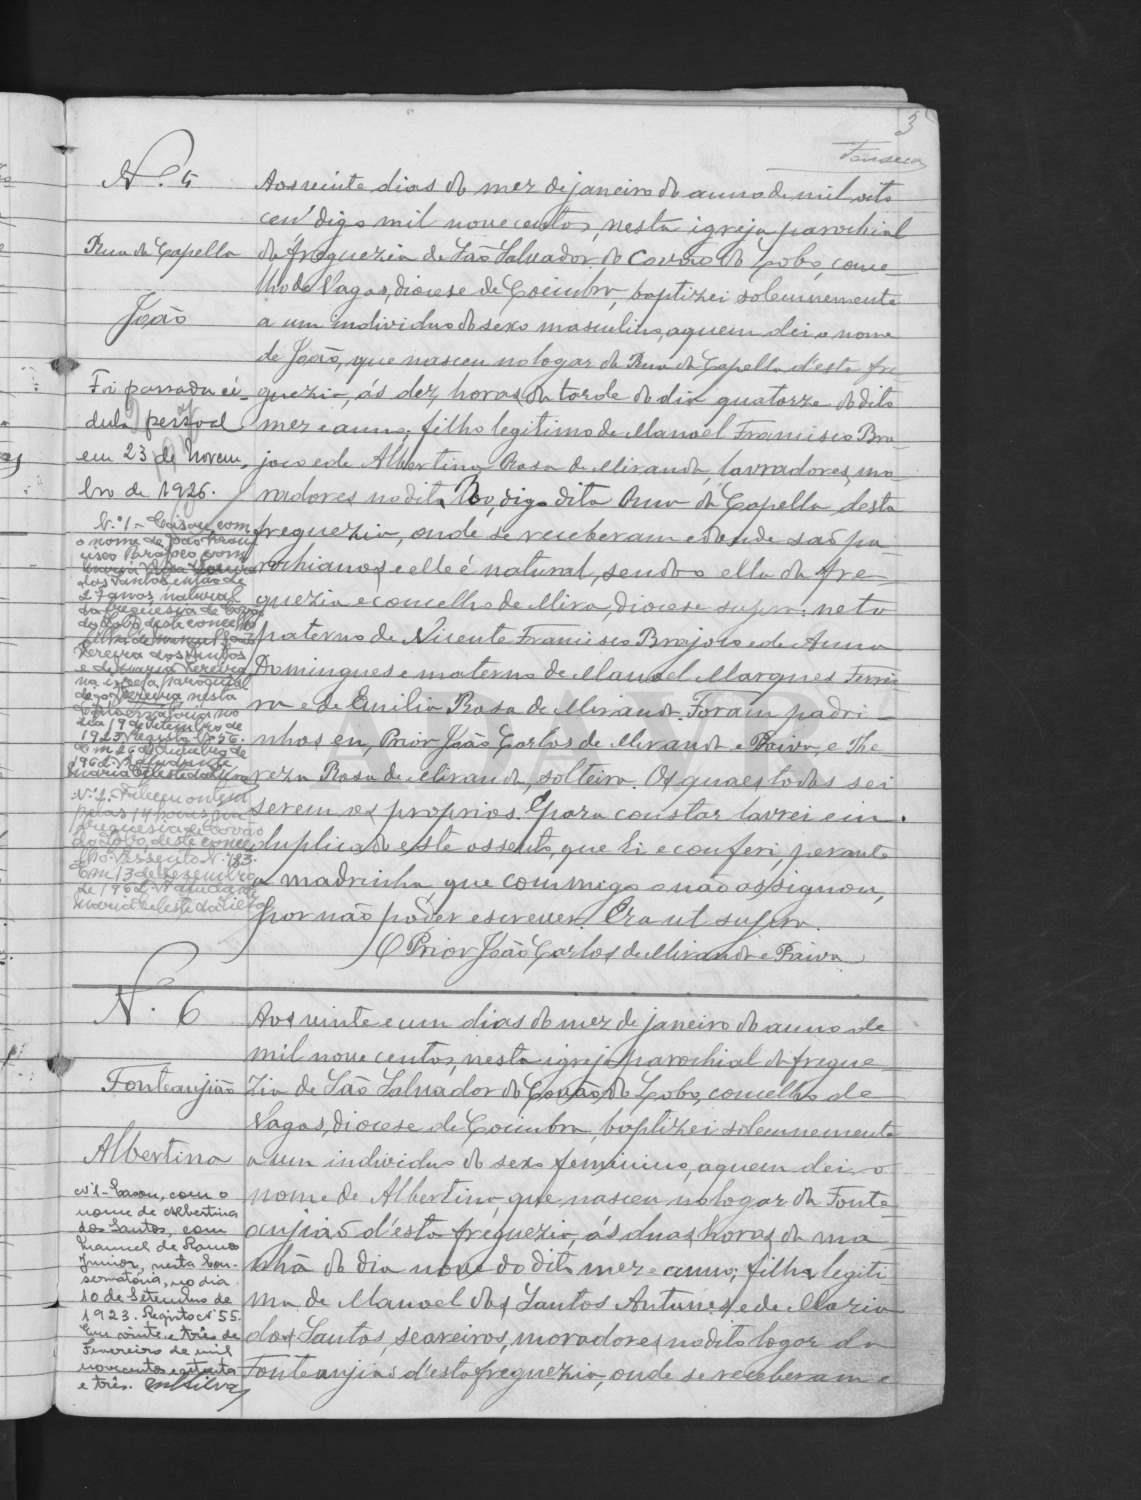 3
Fonseca
N.º 5
Rua da Capella
João
Foi passada cé-
dula pessoal
em 23 de Novem-
bro de 1926.
N.º 1 - Casou com
o nome de João Fran-
cisco Brajoco com
Maria
dos Santos então de
27 anos natural
da freguesia de Covão
do Lobo, deste concelho
filha de Manuel José
Pereira dos Santos
e de Maria Pereira
na igreja paroquial
nesta
Conservatória no
dia 19 de Setembro de
1925. Registo N.º 56.
Em 26 de Outubro de
1962. O Ajudante,
Maria Celeste da Silva
N.º 2. Faleceu ontem
pelas 14 horas na
freguesia de Covão
do Lobo, deste conce-
lho. Assento N.º 183.
Em 13 de Dezembro
de 1962. O Ajudante,
Maria Celeste da Silva
Aos vinte dias do mez de janeiro do anno de mil oito
cen' digo mil nove centos, nesta igreja parochial
da freguezia de São Salvador do Covão do Lobo, conce-
lho de Vagos, diocese de Coimbra, baptizei solemnemente
a um individuo do sexo masculino, a quem dei o nome
de João, que nasceu no logar da Rua da Capella d'esta fre
guezia, ás dez horas da tarde do dia quatorze do dito
mez e anno, filho legitimo de Manoel Francisco Bra
joco e de Albertina Rosa de Miranda, lavradores, mo
radores na dita Rua, digo dita Rua da Capella, desta
freguezia, onde se receberam e donde são pa
rochianos e elle é natural, sendo ella da fre
guezia e concelho de Mira, diocese supra: neto
paterno de Vicente Francisco Brajoco e de Anna
Domingues e materno de Manoel Marques Ferrei
ra e de Emilia Rosa de Miranda. Foram padri-
nhos eu, Prior João Carlos de Miranda e Paiva, e The
reza Rosa de Miranda, solteira. Os quaes todos sei
serem os proprios. E para constar lavrei em
duplicado este assento, que li e conferi, perante
a madrinha que commigo não assignou,
por não poder escrever. Era ut supra.
O Prior João Carlos de Miranda e Paiva
N.º 6
Fonteanjião
Albertina
Nº 1 - Casou, com o
nome de Albertina
dos Santos, com
Manuel de Ramos
Junior, nesta Con-
servatória, no dia
10 de Setembro de
1923. Registo Nº 55.
Em vinte e três de
Fevereiro de mil
novecentos e setenta
e três. CMSilva
Aos vinte e um dias do mez de janeiro do anno de
mil nove centos, nesta igreja parochial da fregue
zia de São Salvador do Covão do Lobo, concelho de
Vagos, diocese de Coimbra, baptizei solemnemente
a um individuo do sexo feminino, a quem dei o
nome de Albertina, que nasceu no logar da Fonte
anjião d'esta freguezia, ás duas horas da ma
nhã do dia nove do dito mez e anno; filha legiti
ma de Manoel dos Santos Antunes e de Maria
dos Santos, seareiros, moradores no dito logar da
Fonteanjião d'esta freguezia, onde se receberam e